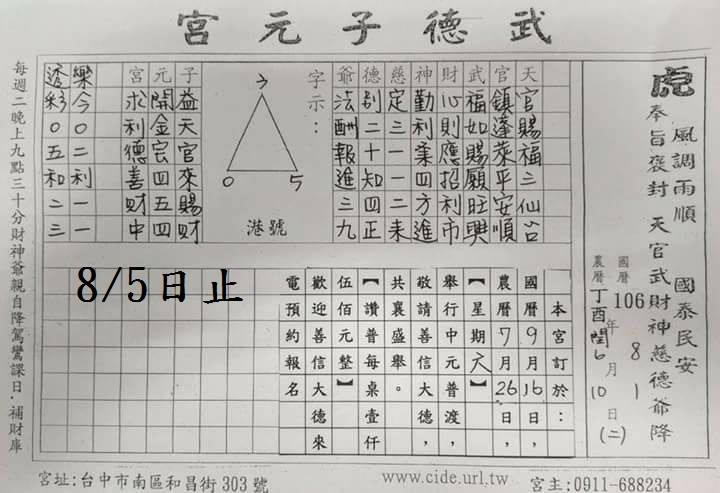 武德子元宮
虎
風調雨順 國泰民安
奉旨褒封 天官武財神慈德爺降
國曆 106年8月1日(二)
農曆 丁酉 閏6 10
天官賜福三仙台
官鎮蓬萊平安順
武福如賜願旺興
財心則應招利市
神勤利業四方進
慈定三一一二来
德別二十知四正
爺法酬報進三九
字示：
7
0 5
港號
子益天官來賜財
元開金宏四五四
宮求利德善財中
樂今0二利一一
透彩0五和二三
本宮訂於：
國曆9月16日，
農曆7月26日，
【星期六】
舉行中元普渡，
敬請善信大德，
共襄盛舉。
【讚普每桌壹仟
伍佰元整】
歡迎善信大德來
電預約報名
8/5日止
每週二晚上九點三十分財神爺親自降駕鸞課日，補財庫
宮址:台中市南區和昌街303號
www.cide.url.tw
宮主:0911-688234